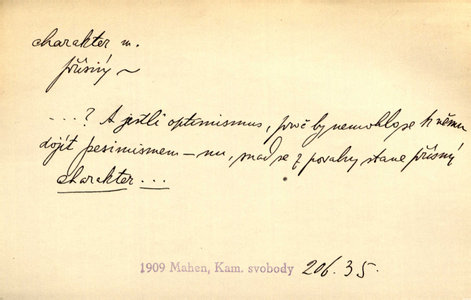 charakter m.
přísný ~
...? A jestli optimismus, proč by nemohlo se k němu
dojít pesimismem – nu, snad se z povahy stane přísný
charakter...
1909 Mahen, Kam. svobody 206.35.